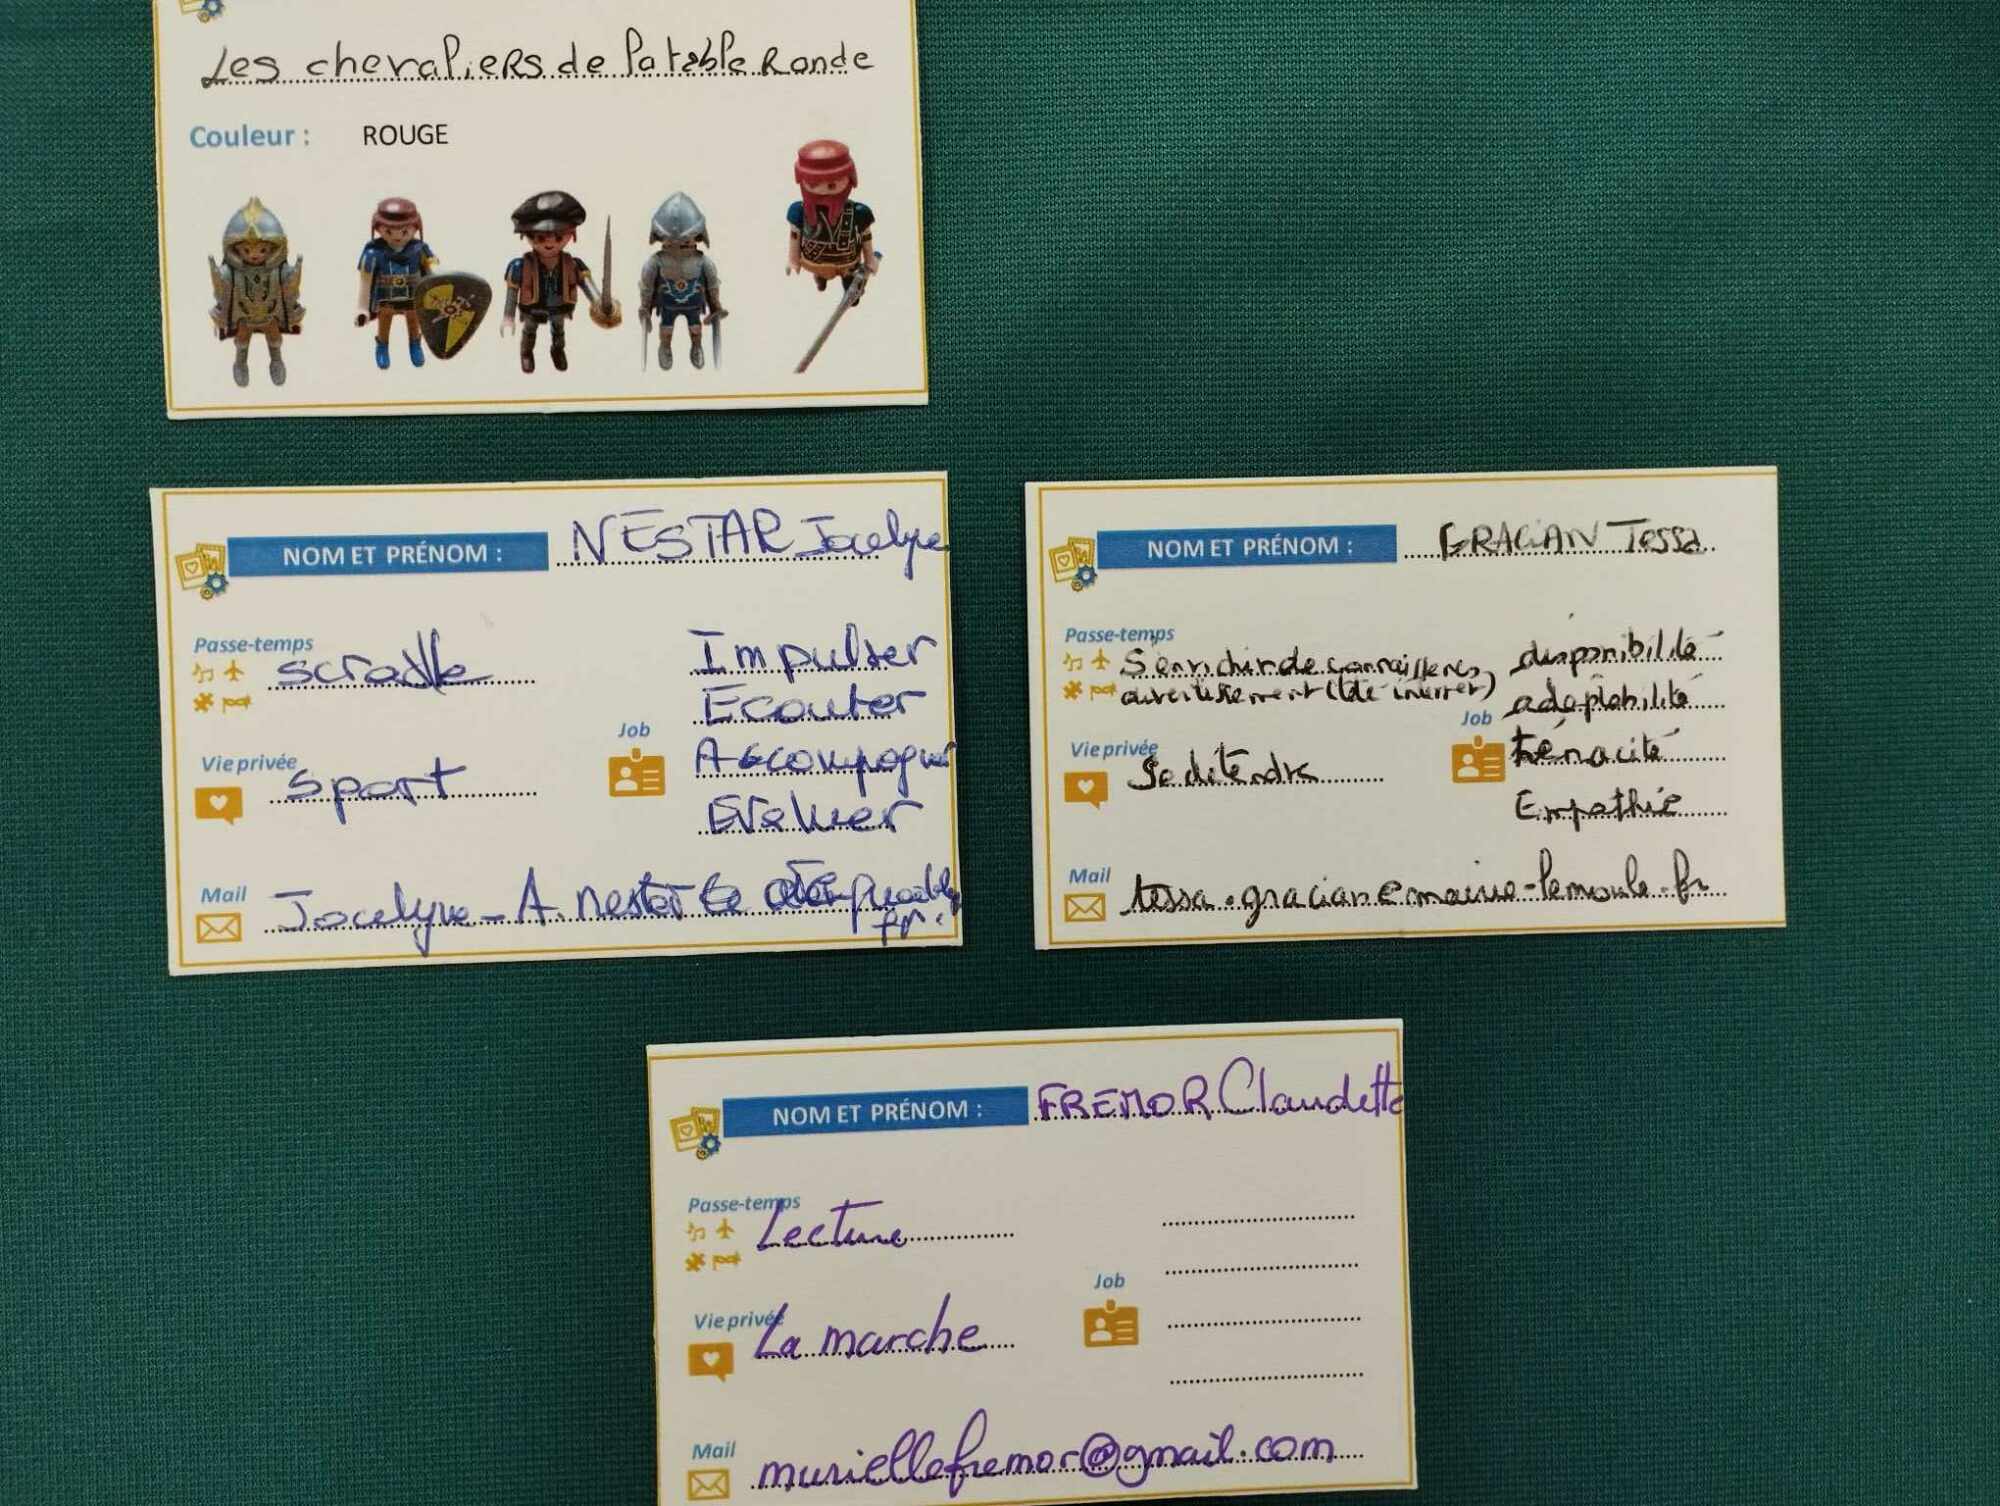 Les chevaliers de la table Ronde
Couleur : ROUGE
NOM ET PRÉNOM : NESTAR Jocelyne
Passe-temps
scrabble
Impulser
Ecouter
Job
Vie privée
Accompagner
sport
Evaluer
Mail
Jocelyne-A.nestar
fr.
NOM ET PRÉNOM : GRACIAN Tessa
Passe-temps
S'enrichir de connaissances,
disponibilité
adaptabilité
Job
Vie privée
ténacité
Se détendre
Empathie
Mail
tessa.gracian@mairie-lemoule.fr
NOM ET PRÉNOM : FREMOR Claudette
Passe-temps
Lecture
Job
Vie privée
La marche
Mail
muriellefremor@gmail.com